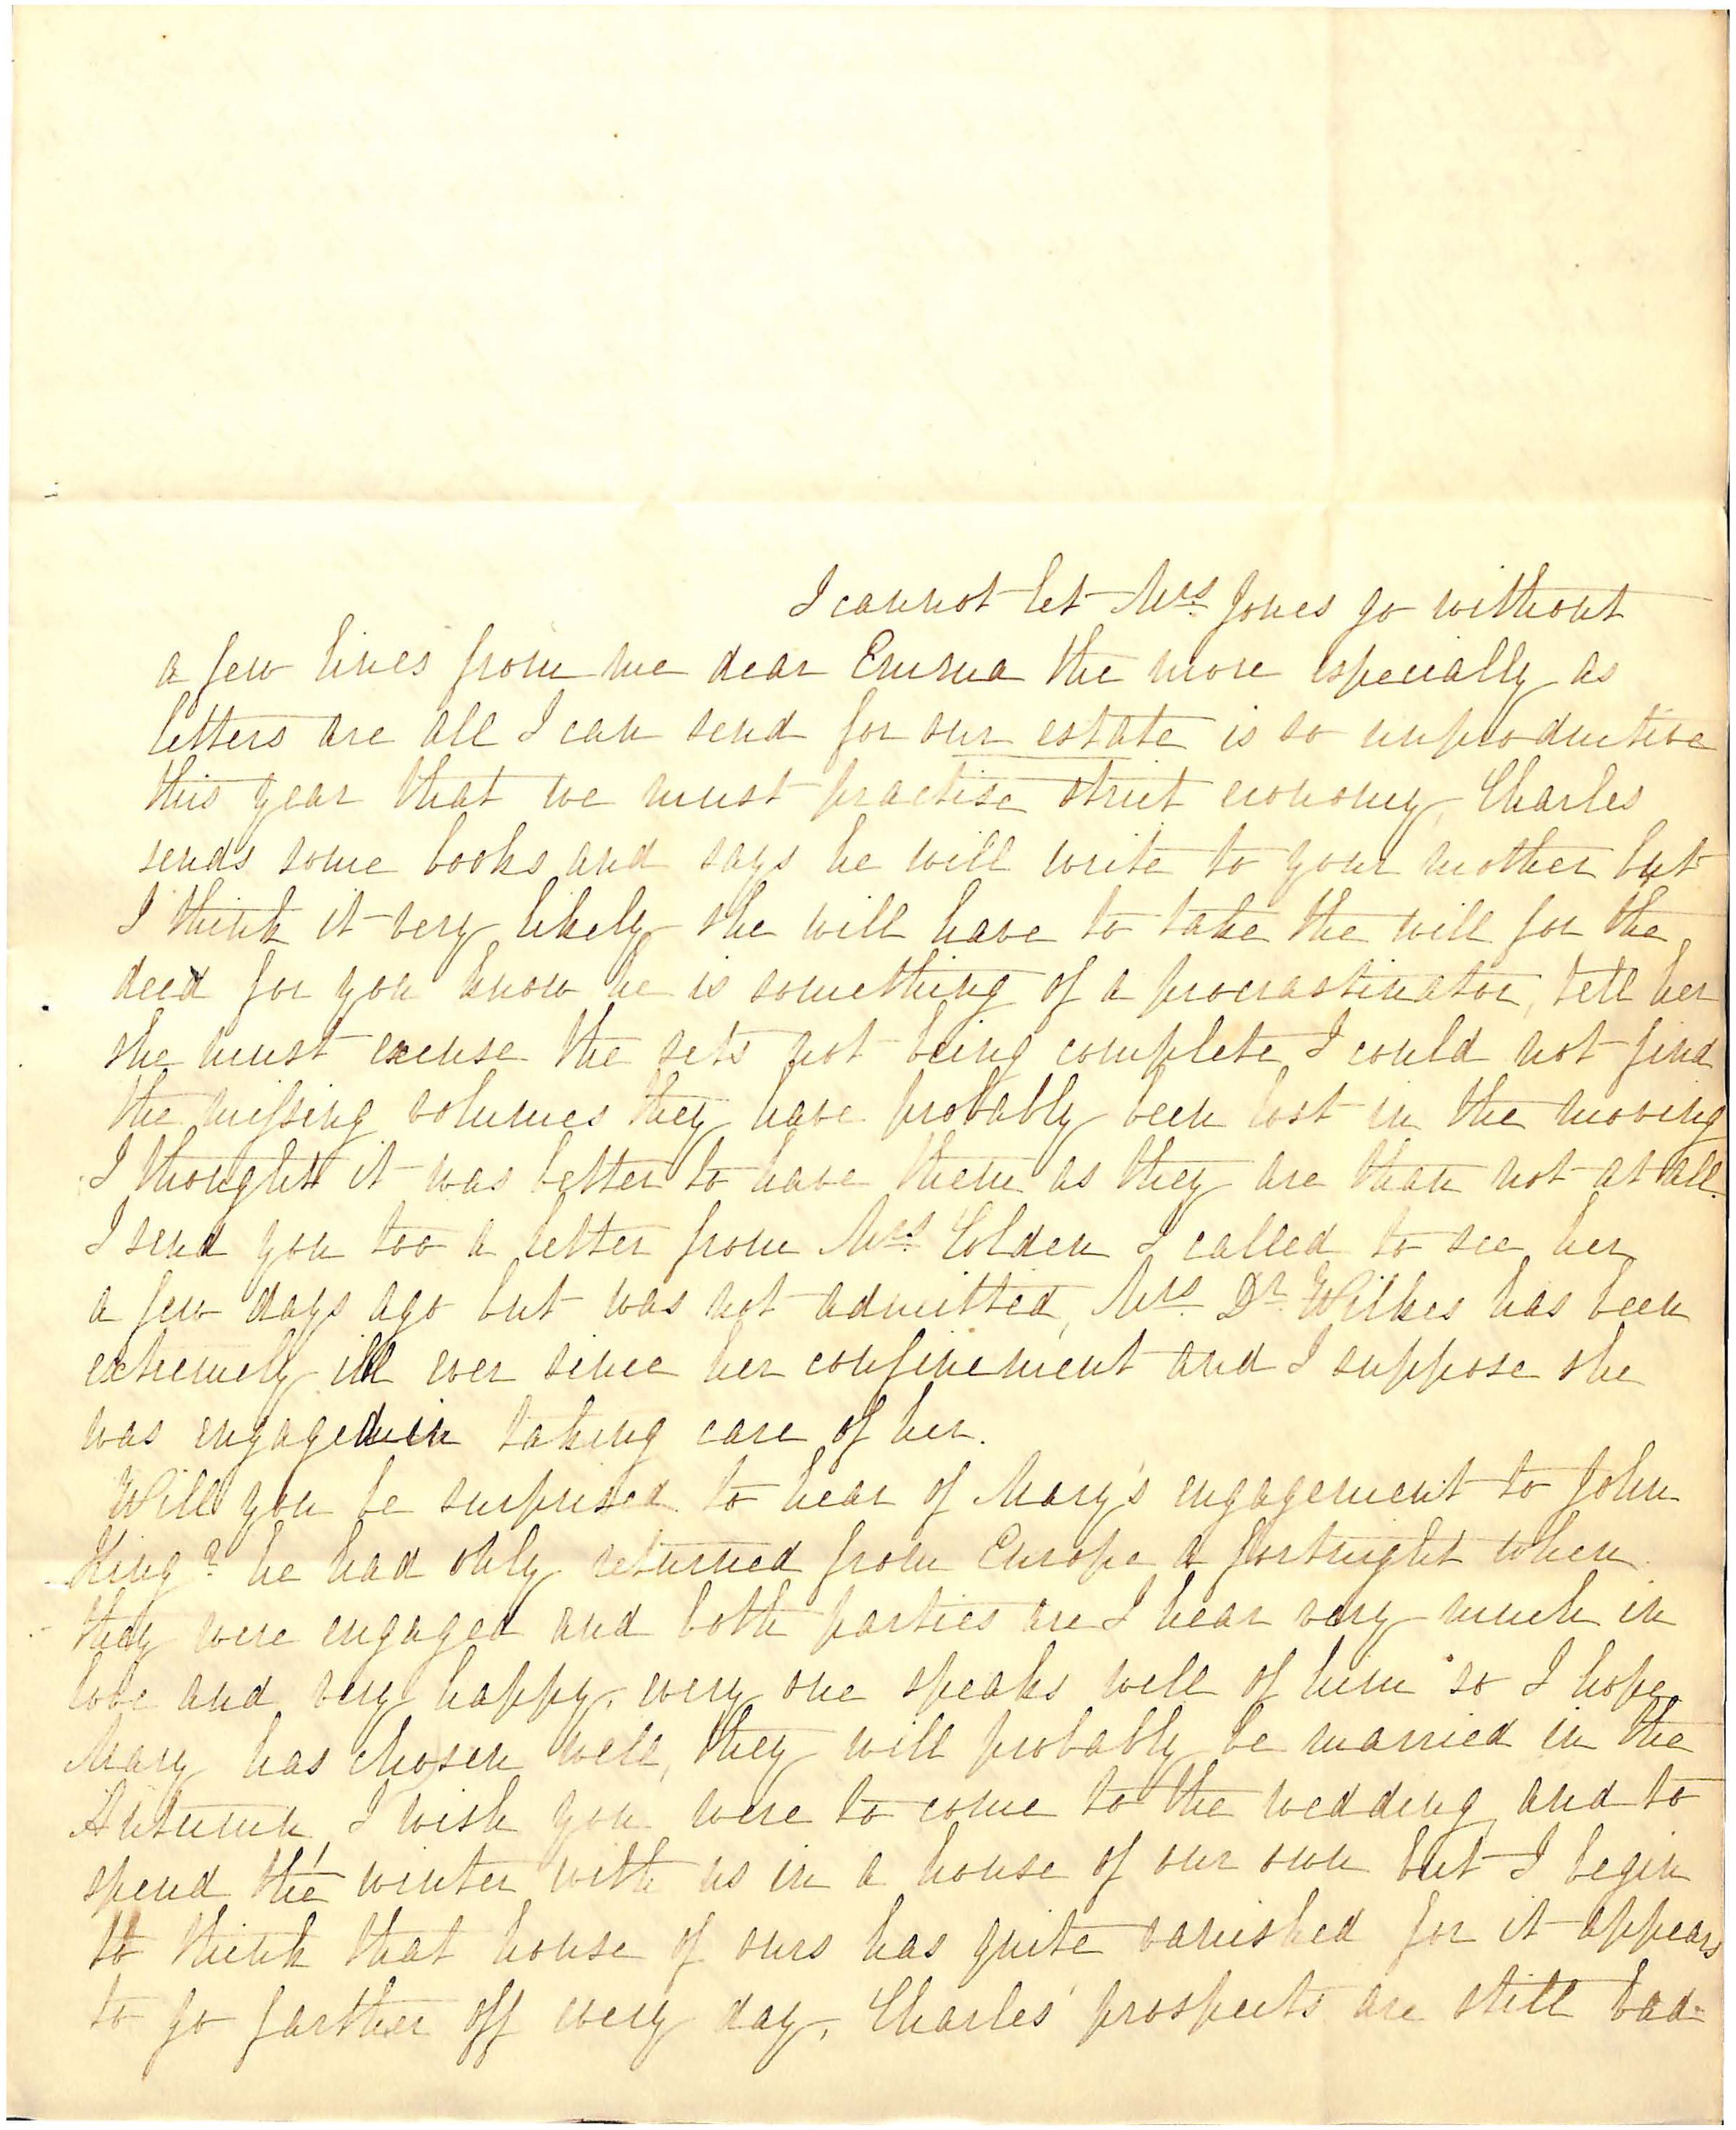 I cannot let Mrs. Jones go without
a few lines from me dear Emma the more especially as
letters are all I can send for our estate is so unproductive
this year that we must practise strict economy, Charles
sends some books and says he will write to your mother but
I think it very likely she will have to take the will for the
deed for you know he is something of a procrastinator, tell her
she must excuse the sets not being complete I could not find
the missing volumes they have probably been lost in the moving
I thought it was better to have them as they are than not at all.
I send you too a letter from Mrs. Colden I called to see her
a few days ago but was not admitted, Mrs. Dr. Wilkes has been
extremely ill ever since her confinement and I suppose she
was engaged in taking care of her.
Will you be surprised to hear of Mary's engagement to John
King? he had only returned from Europe a fortnight when
they were engaged and both parties are I hear very much in
love and very happy, every one speaks well of him so I hope
Mary has chosen well, they will probably be married in the
Autumn, I wish you were to come to the wedding and to
spend the winter with us in a house of our own but I begin
to think that house of ours has quite vanished for it appears
to go farther off every day, Charles' prospects are still bad